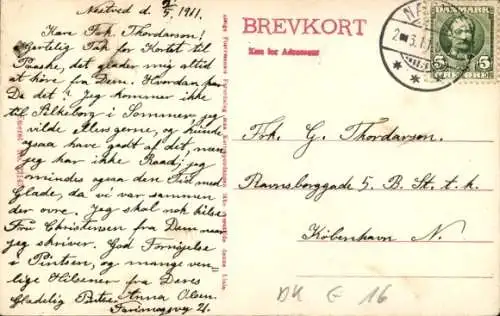 Nestved d. 2/5 1911.
Kære Frk. Thordarson!
Hjertelig Tak for Kortet til
Paaske, det glæder mig altid
at höre fra Dem. Hvordan har
De det? Jeg kommer ikke
til Silkeborg i Sommer, jeg
vilde ellers gerne, og kunde
ogsaa have godt af det, men
jeg har ikke Raad; jeg
mindes ogsaa den Tid med
Glæde, da vi var sammen
der ovre. Jeg skal nok hilse
Fru Christensen fra Dem naar
jeg skriver. God Fornøjelse
i Pintsen, og mange ven-
lige Hilsener fra Deres
Anna Olsen.
Farimagsvej 21.
BREVKORT
Kun for Adressen
DANMARK
5 5
ØRE ØRE
Frk. G. Thordarson.
Ravnsborggade 5. B. St. t. h.
København N.
DK E 16